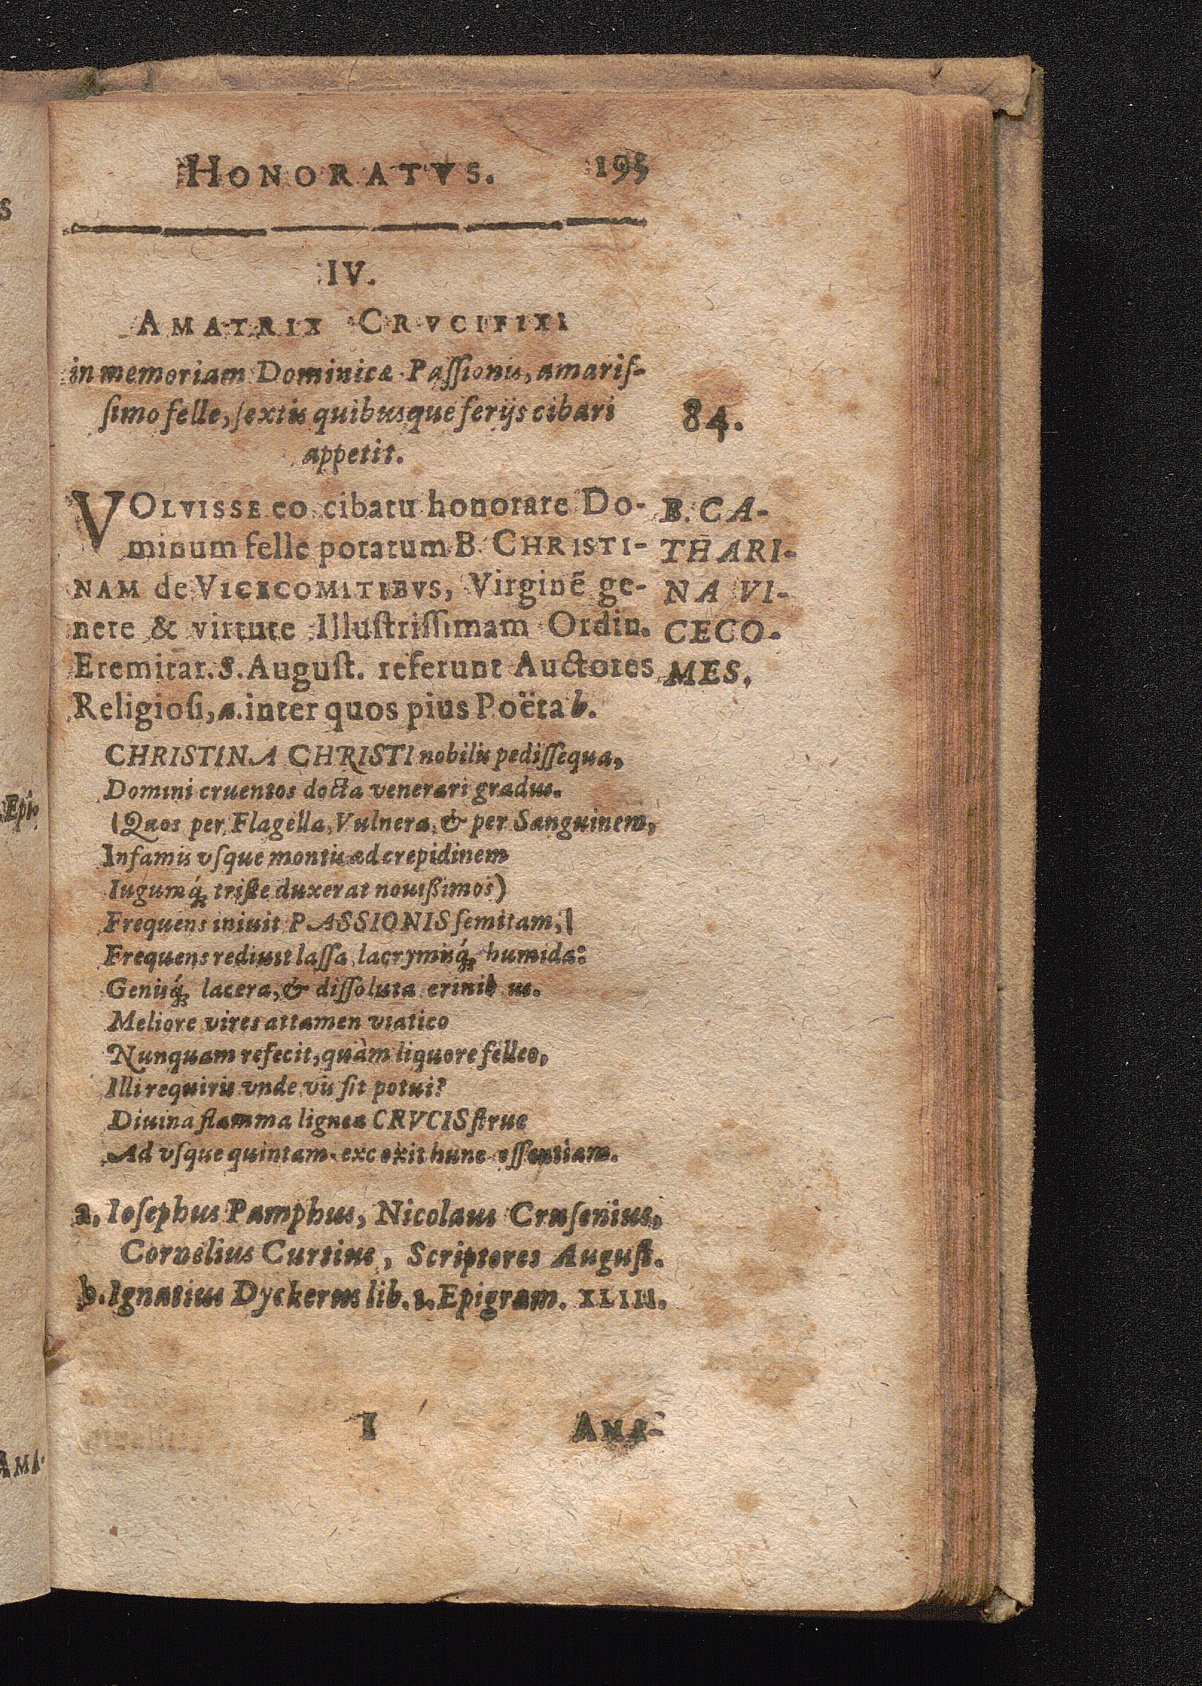 HONORATVS. 195
IV.
AMATRIX CRVCIFIXI
in memoriam Dominicæ Paſſionis, amariſ-
ſimo felle, ſextis quibusque ferijs cibari
appetit.
84.
VOLVISSE eo cibatu honorare Do-
minum felle potatum B. CHRISTI-
NAM de VICECOMITIBVS, Virginẽ ge-
nere & virtute Illuſtriſſimam Ordin.
Eremitar. S. Auguſt. referunt Auctores
Religioſi, a. inter quos pius Poëta b.
B. CA-
THARI-
NA VI-
CECO-
MES.
CHRISTINA CHRISTI nobilis pediſſequa,
Domini cruentos docta venerari gradus.
(Quos per Flagella, Vulnera, & per Sanguinem,
Infamis vſque montis ad crepidinem
Iugumq́; triſte duxerat nouiſsimos)
Frequens iniuit PASSIONIS ſemitam,
Frequens rediuit laſſa, lacrymisq́; humida:
Genisq́; lacera, & diſſoluta crinib us.
Meliore vires attamen viatico
Nunquam refecit, quàm liquore felleo,
Illi requiris vnde vis ſit potui?
Diuina flamma lignea CRVCIS ſtrue
Ad vſque quintam excoxit hunc eſſentiam.
a. Ioſephus Pamphus, Nicolaus Cruſenius,
Cornelius Curtius, Scriptores Auguſt.
b. Ignatius Dyckerus lib. 2. Epigram. XLIII.
I AMA-
S
Epi.
AMA-